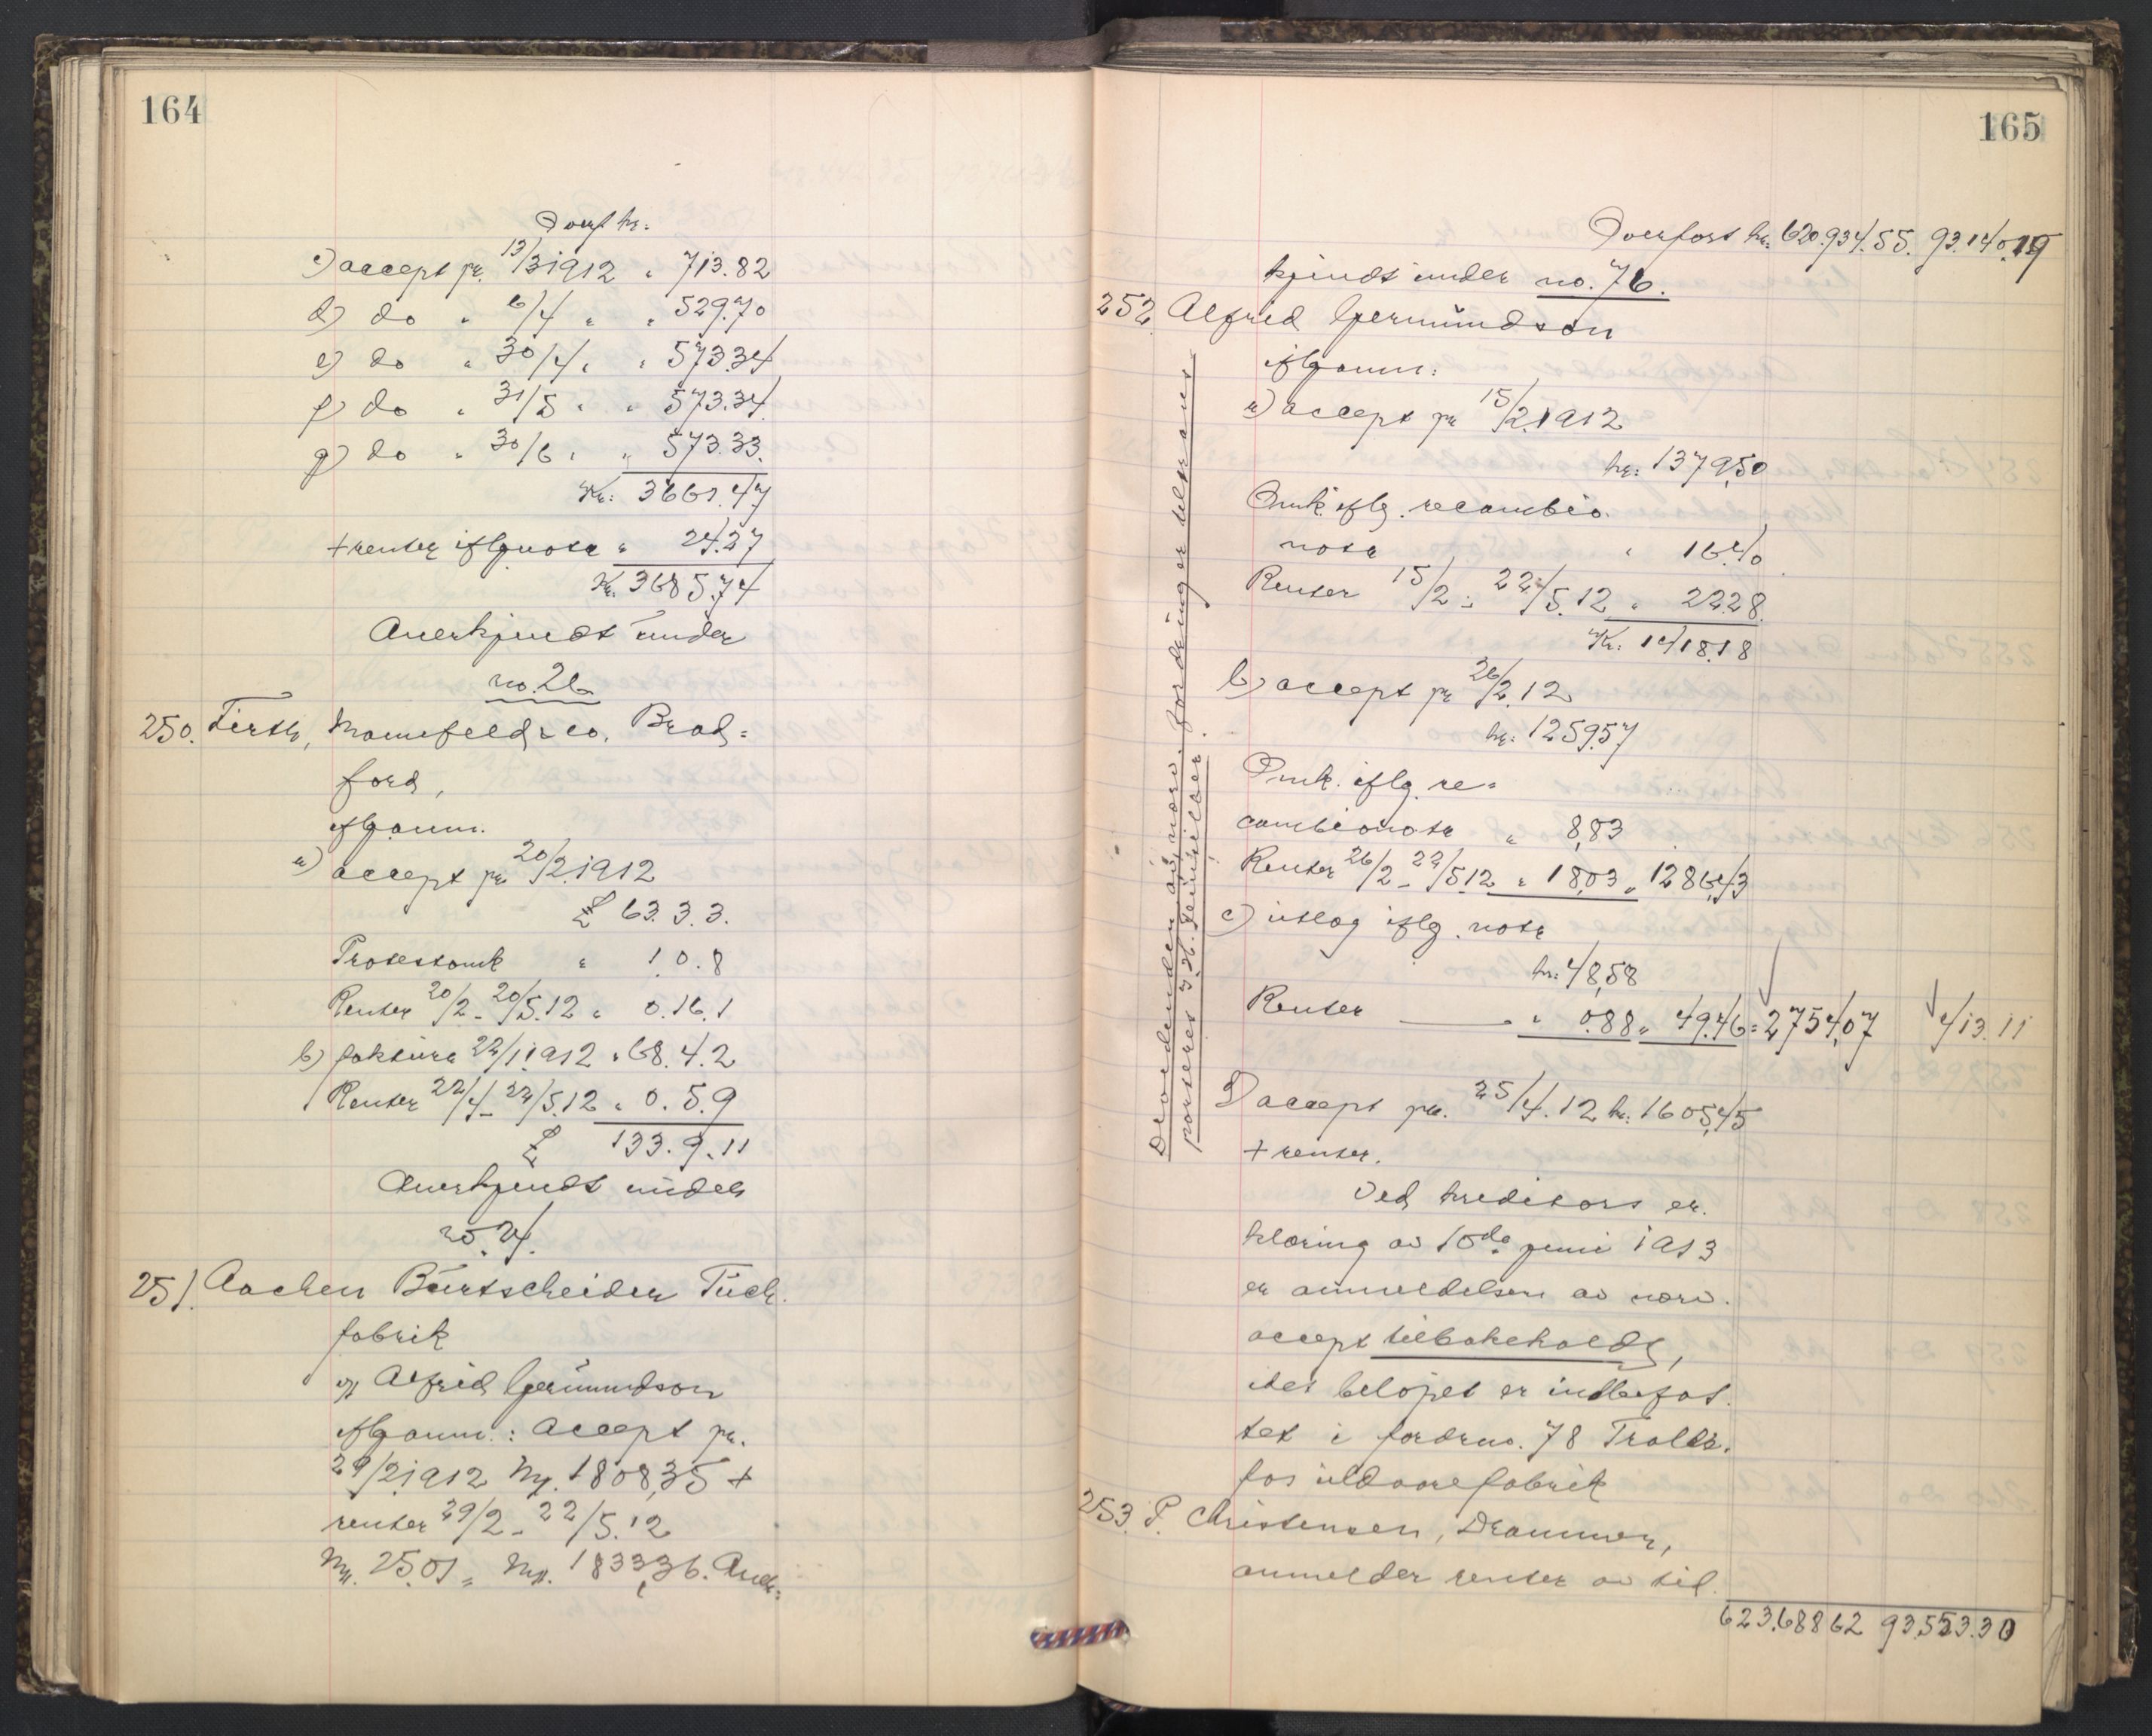 164
Overf kr.
c) accept pr. 13/3 1912 " 713.82
d) do " 6/4 " " 529.70
e) do " 30/4 " " 573.34
f) do " 31/5 " " 573.34
g) do " 30/6 " " 573.33.
Kr. 3661.47
+ renter iflg nota " 24.27
Kr. 3685.74
Anerkjendt under
no. 26
250. Firth, & Co. Brad=
ford,
iflg anm.
a) accept pr. 20/2 1912
£ 63.3.3.
Protestomk " 1.0.8
Renter 20/2 - 20/5.12 " 0.16.1
b) faktura 22/1 1912 " 68.4.2
Renter 22/4 - 22/5.12 " 0.5.9
£ 133.9.11
Anerkjendt under
no. 24.
251. Aachen Burtscheider Tuch-
fabrik
v/ Alfred Germundson
iflg anm.: accept pr.
29/2 1912 Mk. 1808,35 +
renter 29/2 - 22/5.12
Mk. 25.01 = Mk. 1833,36. Aner-
165
Overført kr. 620.934.55. 93.140.19
kjendt under no. 76.
252. Alfred Germundson
iflg anm:
a) accept pr 15/2 1912
kr. 1379,50
Omk. iflg. recambio-
nota " 16.40
Renter 15/2 - 22/5.12 " 22.28
Kr. 1418.18
b) accept pr 26/2.12
kr. 1259.57
Omk. iflg. re=
cambionota " 8,83
Renter 26/2 - 22/5.12 " 18,03 " 1286,43
c) utlæg iflg. nota
kr. 48,58
Renter " 0.88 " 49.46 = 2754,07 413.11
d) accept pr. 25/4.12 kr. 1605,45
+ renter.
Ved kreditors er-
klæring av 10de juni 1913
er anmeldelsen av nærv.
accept tilbakeholdt,
idet beløpet er indbefat-
tet i fordr no. 78 Trolla-
fos uldvarefabrik
Dividenden av nærv. fordringer
253. P. Christensen, Drammen,
anmelder renter av til-
623.688 62 93.553.30